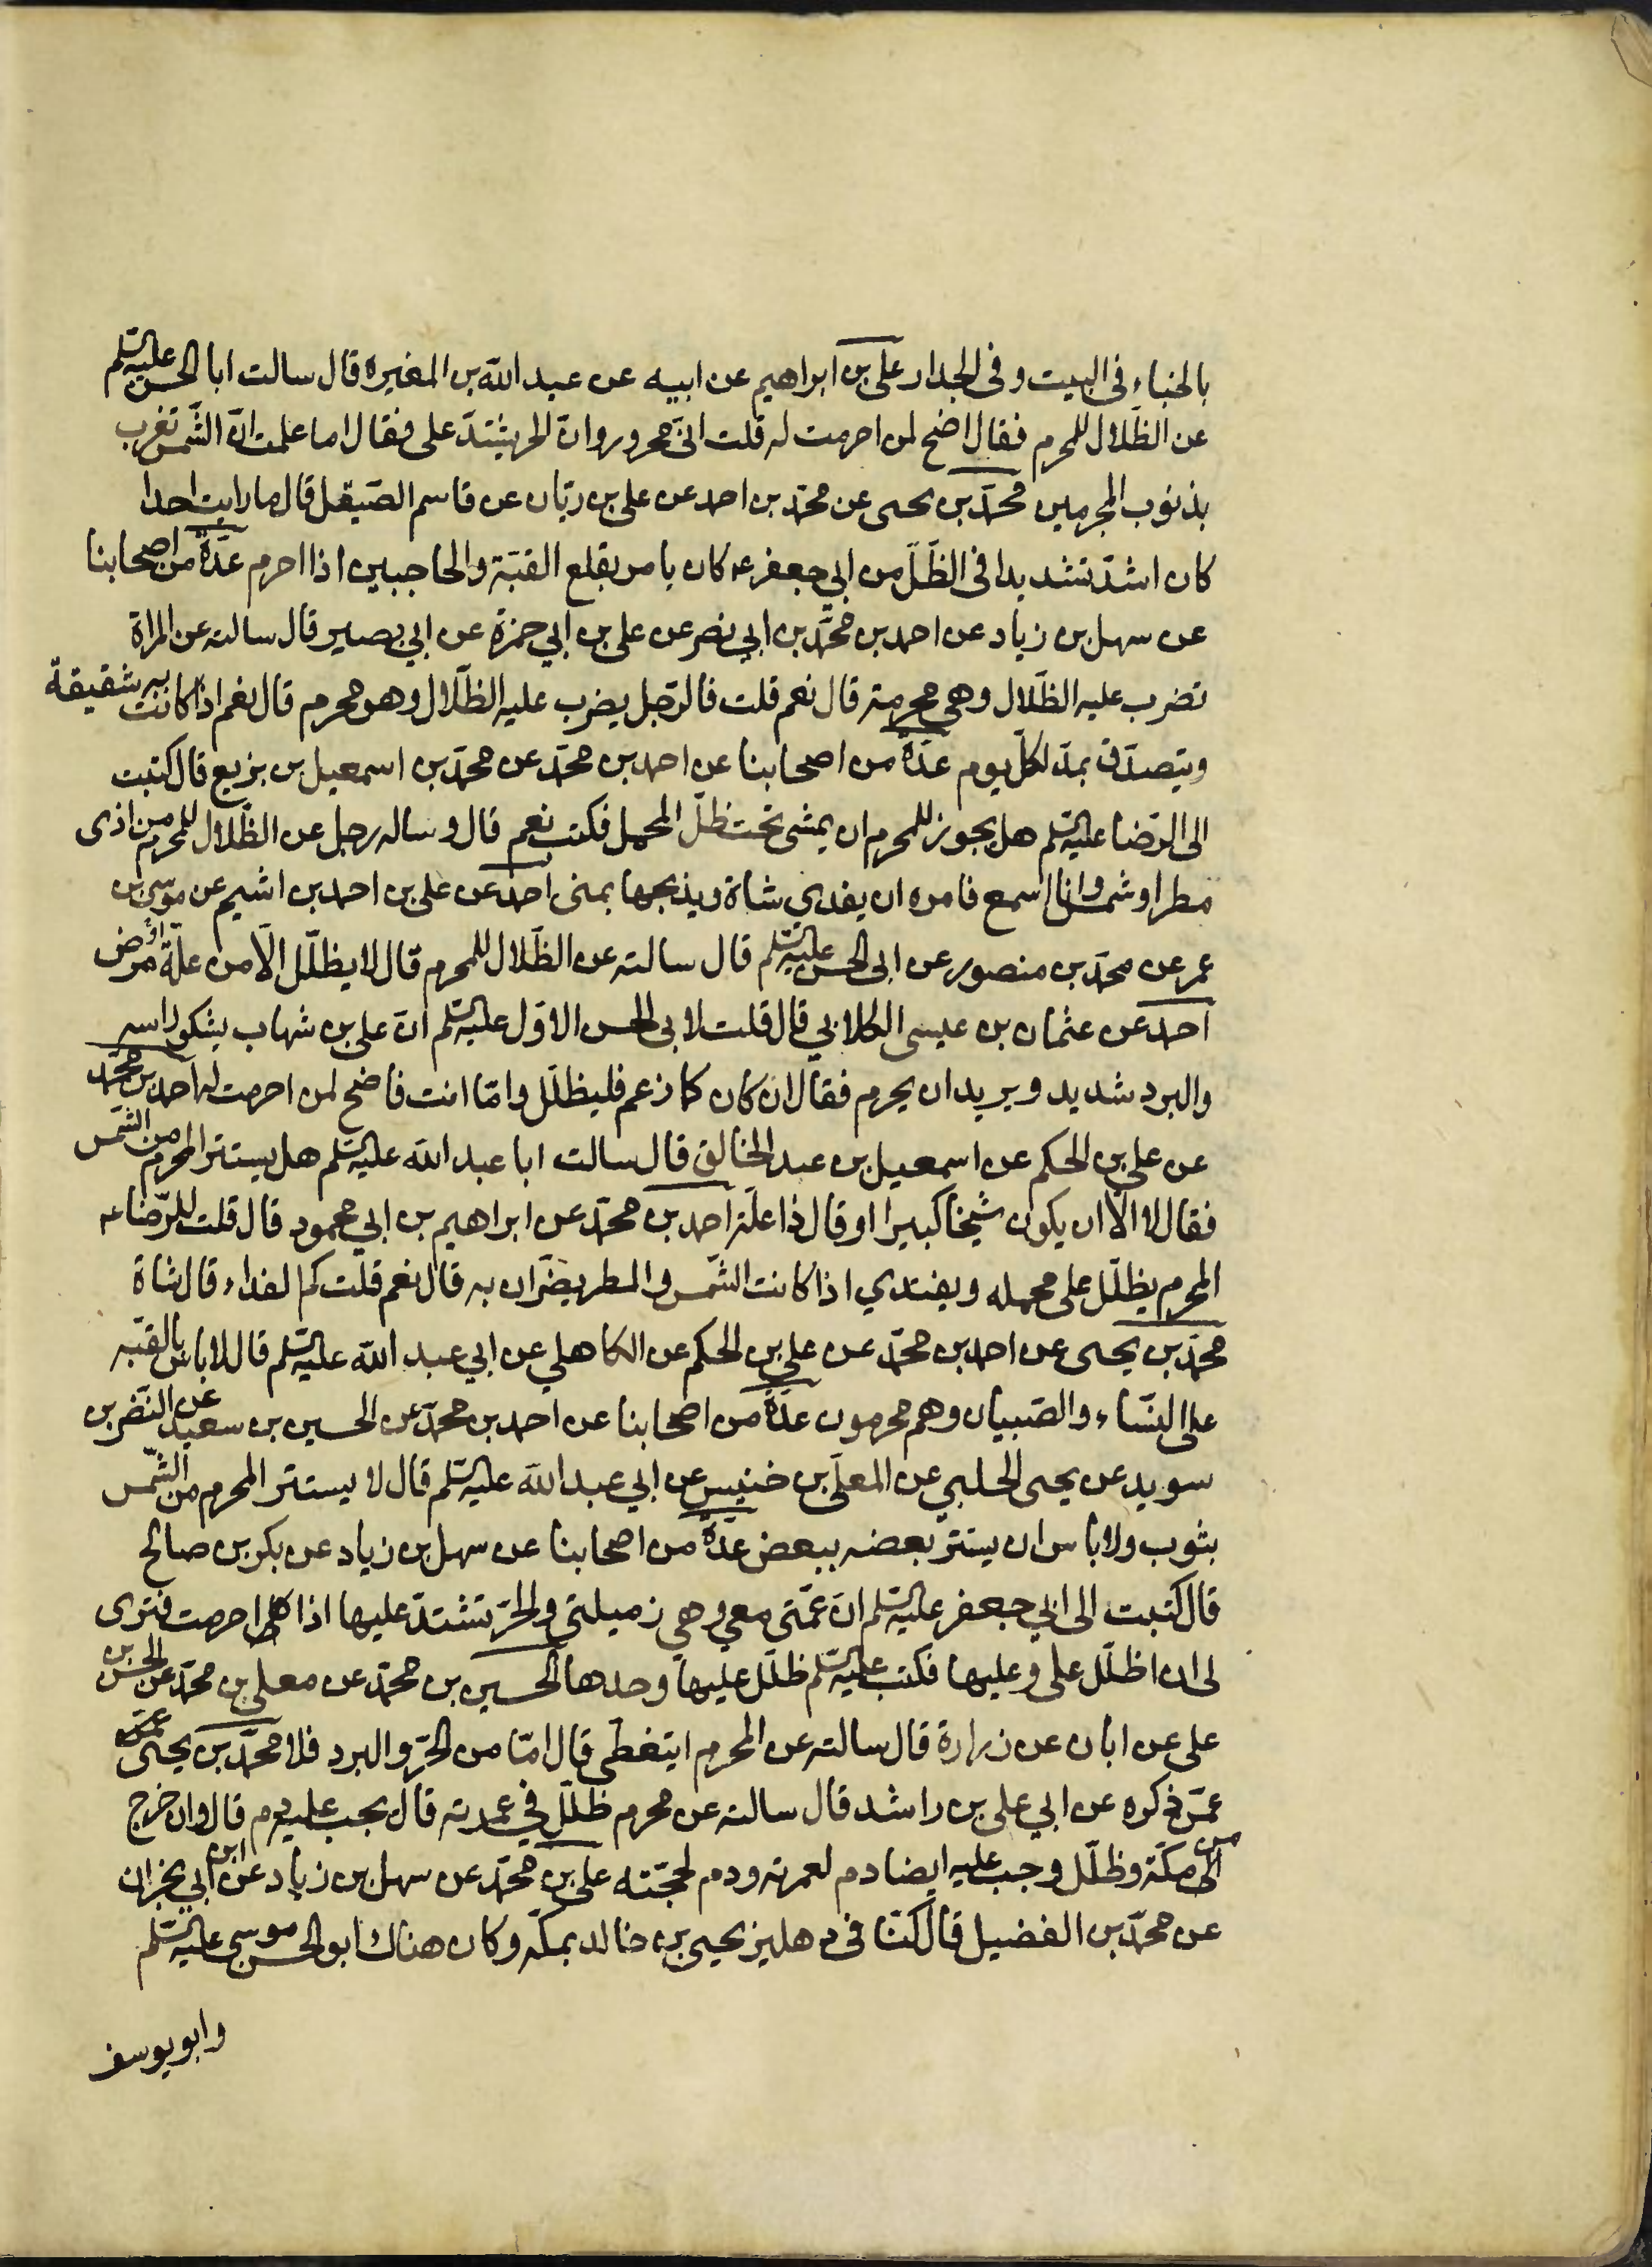 بالخباء في البيت وفي الجدار علي بن ابراهيم عن ابيه عن عبد الله بن المغيرة قال سالت ابا الحسن عليه السلم
عن الظّلال للمحرم فقال اضح لمن احرمت له قلت انّي محرور وانّ الحر يشتدّ على فقال اما علمت انّ الشّمس تغرب
بذنوب المجرمين محمّد بن يحيى عن محمّد بن احمد عن علي بن ريّان عن قاسم الصّيقل قال ما رايت احدا
كان اشدّ تشديدا في الظّلّ من ابي جعفر ع كان يامر بقلع القبّة والحاجبين اذا احرم عدّة من اصحابنا
عن سهل بن زياد عن احمد بن محمّد بن ابي نصر عن علي بن ابي حمزة عن ابي بصير قال سالته عن المراة
تضرب عليه الظّلال وهي محرمة قال نعم قلت فالرّجل يضرب عليه الظّلال وهو محرم قال نعم اذا كانت به شقيقة
ويتصدّق بمدّ لكلّ يوم عدّة من اصحابنا عن احمد بن محمّد عن محمّد بن اسمعيل بن بزيع قال كتبت
الى الرّضا عليه السلم هل يجوز للمحرم ان يمشى تحت ظلّ المحمل فكتب نعم قال وساله رجل عن الظّلال للمحرم من اذى
مطر او شمس وانا اسمع فامره ان يفدي شاة ويذبحها بمنى احمد عن علي بن احمد بن اشيم عن موسى بن
عمر عن محمّد بن منصور عن ابى الحسن عليه السلم قال سالته عن الظّلال للمحرم قال لا يظلّل الّا من علّة او مرض
احمد عن عثمان بن عيسى الكلابي قال قلت لابى الحسن الاوّل عليه السلم انّ علي بن شهاب يشكو راسه
والبرد شديد ويريد ان يحرم فقال ان كان كما زعم فليظلّل وامّا انت فاضح لمن احرمت له احمد بن محمّد
عن علي بن الحكم عن اسمعيل بن عبد الخالق قال سالت ابا عبد الله عليه السلم هل يستتر المحرم من الشّمس
فقال لا الّا ان يكون شيخا كبيرا او قال ذا علّة احمد بن محمّد عن ابراهيم بن ابي محمود قال قلت للرّضا ع
المحرم يظلّل على محمله ويفتدي اذا كانت الشّمس والمطر يضرّان به قال نعم قلت كم الفداء قال شاة
محمّد بن يحيى عن احمد بن محمّد عن علي بن الحكم عن الكاهلي عن ابي عبد الله عليه السلم قال لا باس بالقبّه
على النّساء والصّبيان وهم محرمون عدّة من اصحابنا عن احمد بن محمّد عن الحسين بن سعيد عن النّضر بن
سويد عن يحيى الحلبي عن المعلّى بن خنيس عن ابي عبد الله عليه السلم قال لا يستتر المحرم من الشّمس
بثوب ولا باس ان يستتر بعضه ببعض عدّة من اصحابنا عن سهل بن زياد عن بكر بن صالح
قال كتبت الى ابي جعفر عليه السلم انّ عمّتى معي وهي زميلتي والحرّ تشتدّ عليها اذا احرمت فترى
لى ان اظلّل على وعليها فكتب عليه السلم ظلّل عليها وحدها الحسين بن محمّد عن معلى بن محمّد عن الحسن بن
على عن ابان عن زرارة قال سالته عن المحرم ايتغطّى قال امّا من الحرّ والبرد فلا محمّد بن يحيى
عمّن ذكره عن ابي علي بن راشد قال سالته عن محرم ظلّل في عمرته قال يجب عليه دم قال وان خرج
الى مكّة وظلّل وجب عليه ايضا دم لعمرته ودم لحجّته علي بن محمّد عن سهل بن زياد عن ابن ابي نجران
عن محمّد بن الفضيل قال كنّا في دهليز يحيى بن خالد بمكّه وكان هناك ابو الحسن موسى عليه السّلم
وابو يوسف